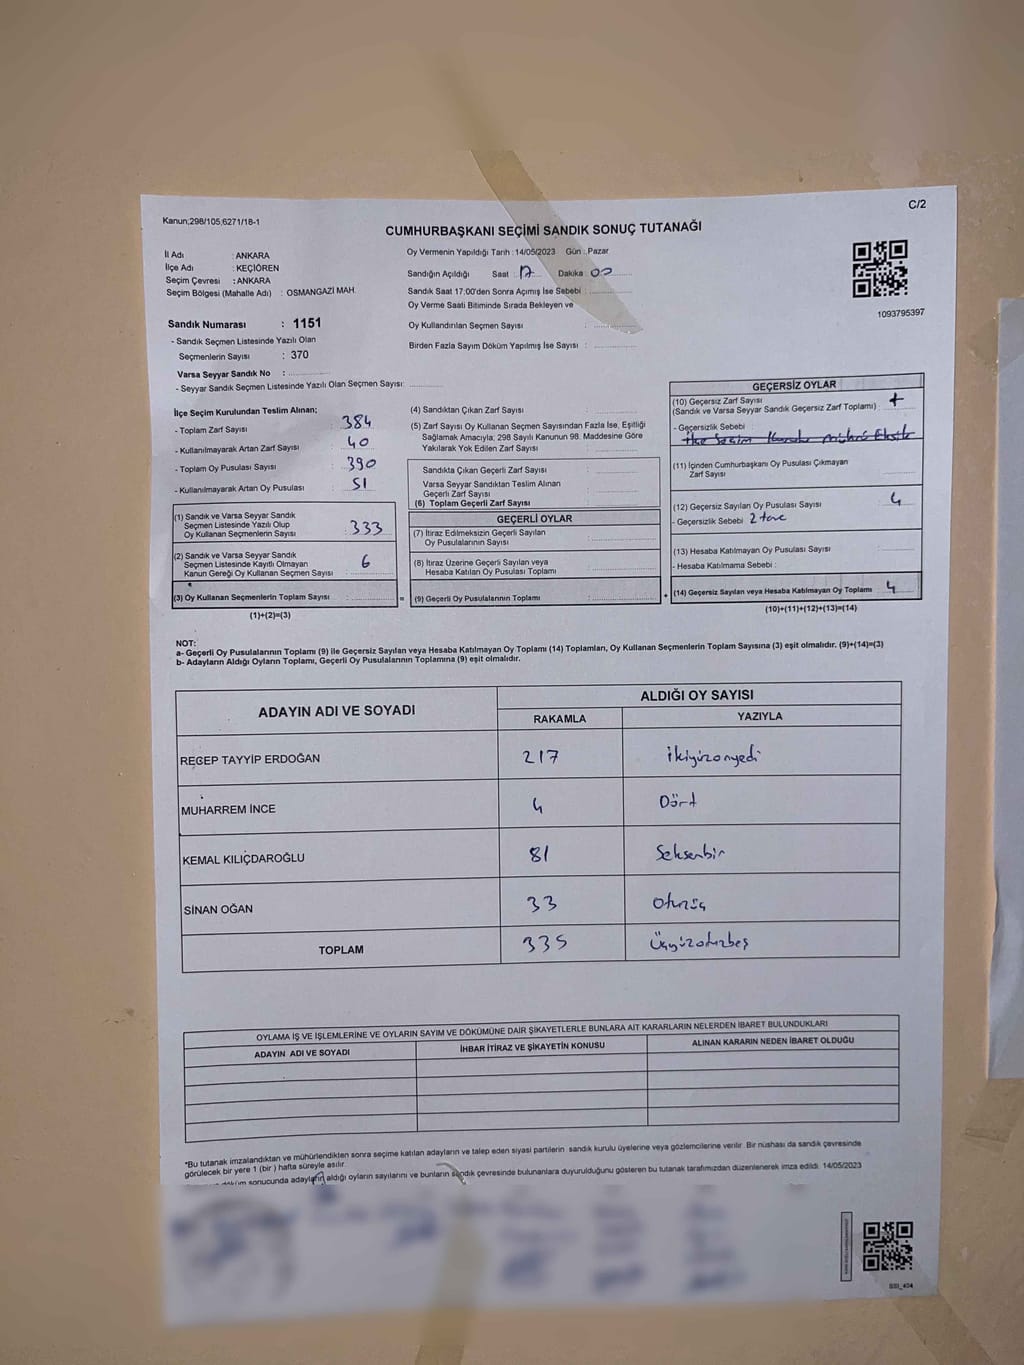 C/2
Kanun;298/105;6271/18-1
CUMHURBAŞKANI SEÇİMİ SANDIK SONUÇ TUTANAĞI
İl Adı : ANKARA
İlçe Adı : KEÇİÖREN
Seçim Çevresi : ANKARA
Seçim Bölgesi (Mahalle Adı) : OSMANGAZİ MAH.
Oy Vermenin Yapıldığı Tarih : 14/05/2023 Gün : Pazar
Sandığın Açıldığı Saat : 17 Dakika : 00
Sandık Saat 17:00'den Sonra Açımış İse Sebebi :
Oy Verme Saati Bitiminde Sırada Bekleyen ve
Oy Kullandırılan Seçmen Sayısı :
Birden Fazla Sayım Döküm Yapılmış İse Sayısı :
1093795397
Sandık Numarası : 1151
- Sandık Seçmen Listesinde Yazılı Olan
Seçmenlerin Sayısı : 370
Varsa Seyyar Sandık No :
- Seyyar Sandık Seçmen Listesinde Yazılı Olan Seçmen Sayısı:
İlçe Seçim Kurulundan Teslim Alınan;
- Toplam Zarf Sayısı : 384
- Kullanılmayarak Artan Zarf Sayısı : 40
- Toplam Oy Pusulası Sayısı : 390
- Kullanılmayarak Artan Oy Pusulası : 51
(1) Sandık ve Varsa Seyyar Sandık
Seçmen Listesinde Yazılı Olup
Oy Kullanan Seçmenlerin Sayısı : 333
(2) Sandık ve Varsa Seyyar Sandık
Seçmen Listesinde Kayıtlı Olmayan
Kanun Gereği Oy Kullanan Seçmen Sayısı : 6
(3) Oy Kullanan Seçmenlerin Toplam Sayısı :
(1)+(2)=(3)
(4) Sandıktan Çıkan Zarf Sayısı :
(5) Zarf Sayısı Oy Kullanan Seçmen Sayısından Fazla İse, Eşitliği
Sağlamak Amacıyla; 298 Sayılı Kanunun 98. Maddesine Göre
Yakılarak Yok Edilen Zarf Sayısı :
Sandıkta Çıkan Geçerli Zarf Sayısı :
Varsa Seyyar Sandıktan Teslim Alınan
Geçerli Zarf Sayısı :
(6) Toplam Geçerli Zarf Sayısı :
GEÇERLİ OYLAR
(7) İtiraz Edilmeksizin Geçerli Sayılan
Oy Pusulalarının Sayısı :
(8) İtiraz Üzerine Geçerli Sayılan veya
Hesaba Katılan Oy Pusulası Toplamı :
= (9) Geçerli Oy Pusulalarının Toplamı :
GEÇERSİZ OYLAR
(10) Geçersiz Zarf Sayısı
(Sandık ve Varsa Seyyar Sandık Geçersiz Zarf Toplamı) :
- Geçersizlik Sebebi :
İlçe Seçim Kurulu mührü Eksik
(11) İçinden Cumhurbaşkanı Oy Pusulası Çıkmayan
Zarf Sayısı
(12) Geçersiz Sayılan Oy Pusulası Sayısı : 4
- Geçersizlik Sebebi 2 tane
(13) Hesaba Katılmayan Oy Pusulası Sayısı :
- Hesaba Katılmama Sebebi :
+ (14) Geçersiz Sayılan veya Hesaba Katılmayan Oy Toplamı 4
(10)+(11)+(12)+(13)=(14)
NOT:
a- Geçerli Oy Pusulalarının Toplamı (9) ile Geçersiz Sayılan veya Hesaba Katılmayan Oy Toplamı (14) Toplamları, Oy Kullanan Seçmenlerin Toplam Sayısına (3) eşit olmalıdır. (9)+(14)=(3)
b- Adayların Aldığı Oyların Toplamı, Geçerli Oy Pusulalarının Toplamına (9) eşit olmalıdır.
ADAYIN ADI VE SOYADI
ALDIĞI OY SAYISI
RAKAMLA YAZIYLA
RECEP TAYYİP ERDOĞAN 217 ikiyüzonyedi
MUHARREM İNCE 4 Dört
KEMAL KILIÇDAROĞLU 81 Seksenbir
SİNAN OĞAN 33 Otuzüç
TOPLAM 335 Üçyüzotuzbeş
OYLAMA İŞ VE İŞLEMLERİNE VE OYLARIN SAYIM VE DÖKÜMÜNE DAİR ŞİKAYETLERLE BUNLARA AİT KARARLARIN NELERDEN İBARET BULUNDUKLARI
ADAYIN ADI VE SOYADI İHBAR İTİRAZ VE ŞİKAYETİN KONUSU ALINAN KARARIN NEDEN İBARET OLDUĞU
*Bu tutanak imzalandıktan ve mühürlendikten sonra seçime katılan adayların ve talep eden siyasi partilerin sandık kurulu üyelerine veya gözlemcilerine verilir. Bir nüshası da sandık çevresinde
görülecek bir yere 1 (bir) hafta süreyle asılır.
döküm sonucunda adayların aldığı oyların sayılarını ve bunların sandık çevresinde bulunanlara duyurulduğunu gösteren bu tutanak tarafımızdan düzenlenerek imza edildi. 14/05/2023